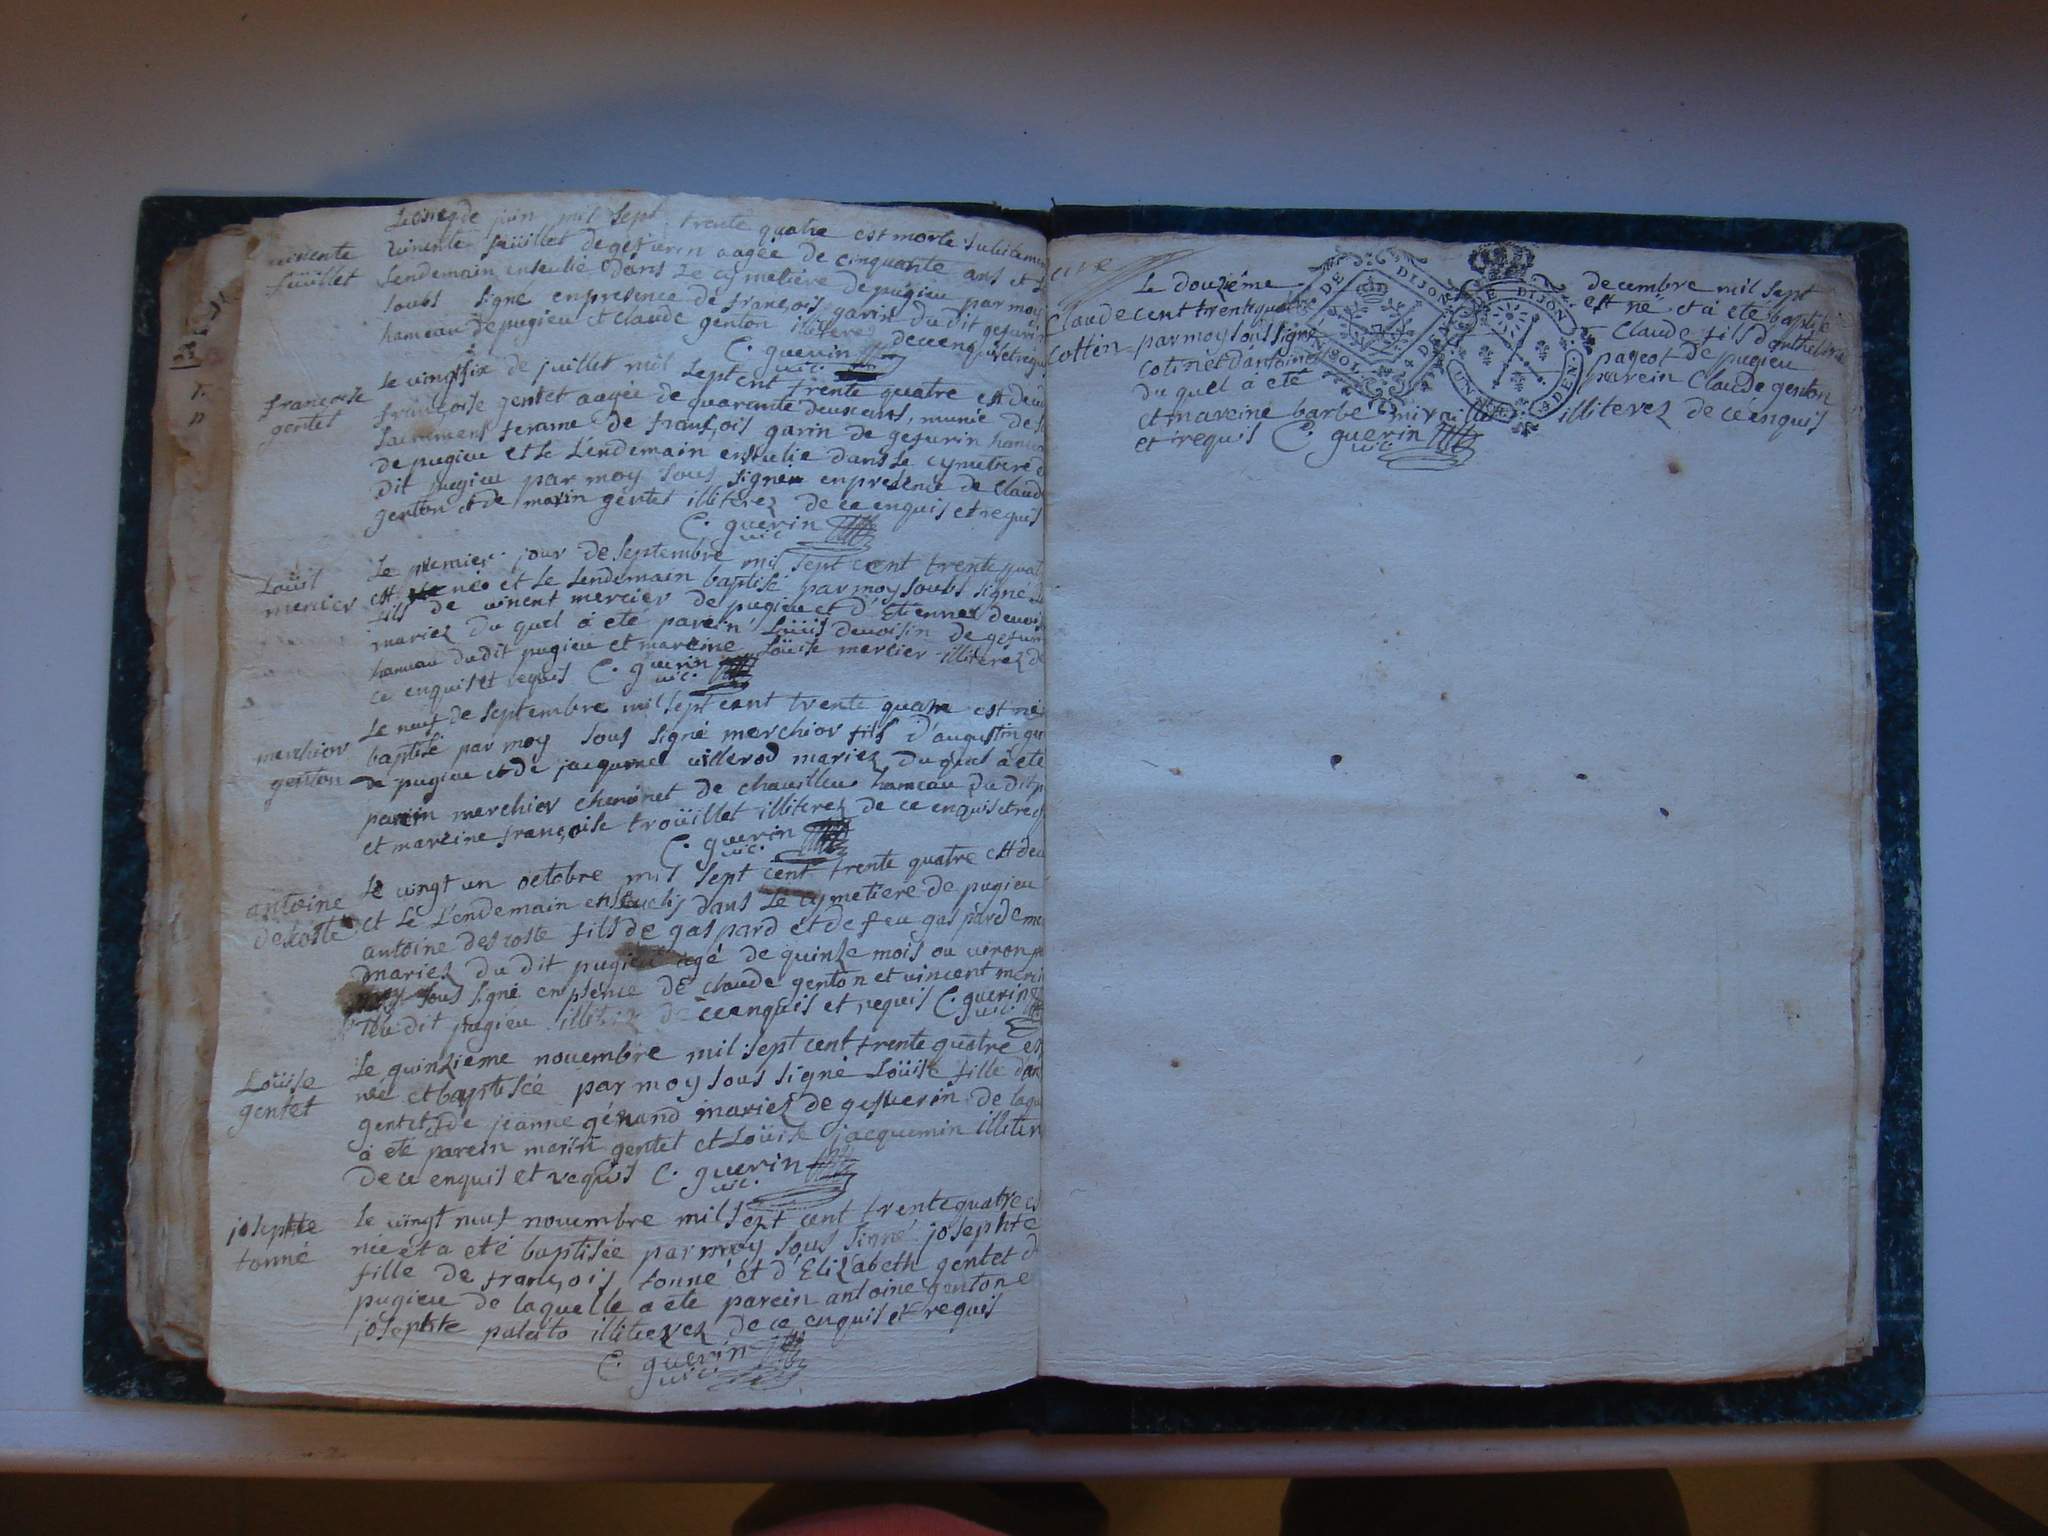 Le onze de juin mil sept trente quatre est morte subitement
vinente vinente füillet de gesurin aagée de cinquante ans et
füillet lendemain enseulie dans le cymetiere de pugieu par moy
soubs signé en presence de françois garin du dit gesurin
hameau de pugieu et claude genton illiterez de ce enquis et requis
C. guerin
vic.
Le vingt six de juillet mil sept cent trente quatre est
françoise françoise gentet aagée de quarante deux ans, munie de
gentet sacrement ferame de françois garin de gesurin hameau
de pugieu et le lendemain enseulie dans le cymetiere
dit pugieu par moy sous signé en presence de claude
genton et de marin gentet illiterez de ce enquis et requis
C. guerin
vic.
Le premier jour de septembre mil sept cent trente quat
Loüis est né et le lendemain baptisé par moy soubs signé
mercier fils de vincent mercier de pugieu et d'Etiennez devoisi
mariez du quel à eté parein Loüis devoisin de gesurin
hameau du dit pugieu et mareine Loüise mercier illiterez de
ce enquis et requis C. guerin
vic.
Le neuf de septembre mil sept cent trente quatre est né
merchior baptisé par moy sous signé merchior fils d'augustin
genton de pugieu et de jacquemel villerod mariez du quel à eté
parein merchior cheminet de chavilleu hameau du dit
et mareine françoise troüillet illiterez de ce enquis et
C. guerin
vic.
Le vingt un octobre mil sept cent trente quatre est
antoine et le lendemain enseuelis dans le cymetiere de pugieu
descoste antoine descoste fils de gaspard et de feu gasparde
mariez du dit pugieu agé de quinse mois ou viron
moy sous signé en psence de claude genton et vincent
du dit pugieu illiterez de ce enquis et requis C. guerin
vic.
Le quinzieme novembre mil sept cent trente quatre
Loüise née et baptisée par moy sous signé Loüise fille
gentet gentet de jeanne génand mariez de gesuerin de
à eté parein marin gentet et Loüise jacquemin
de ce enquis et requis C. guerin
vic.
josephte Le vingt neuf novembre mil sept cent trente quatre
tonné née et a eté baptisée par moy sous signé josephte
fille de françois tonné et d'Elizabeth gentet
pugieu de laquelle a eté parein antoine genton
josephte palato illiterez de ce enquis et requis
C. guerin
vic.
Le douziéme decembre mil sept
Claude cent trente quatre est né et à eté baptisé
Cottin par moy sous signé Claude fils d'anthelme
cotin et d'antoine pageot de pugieu
du quel à eté parein Claude genton
et mareine barbe illiterez de ce enquis
et requis C. guerin
vic.
DE DIJON
DE DIJON